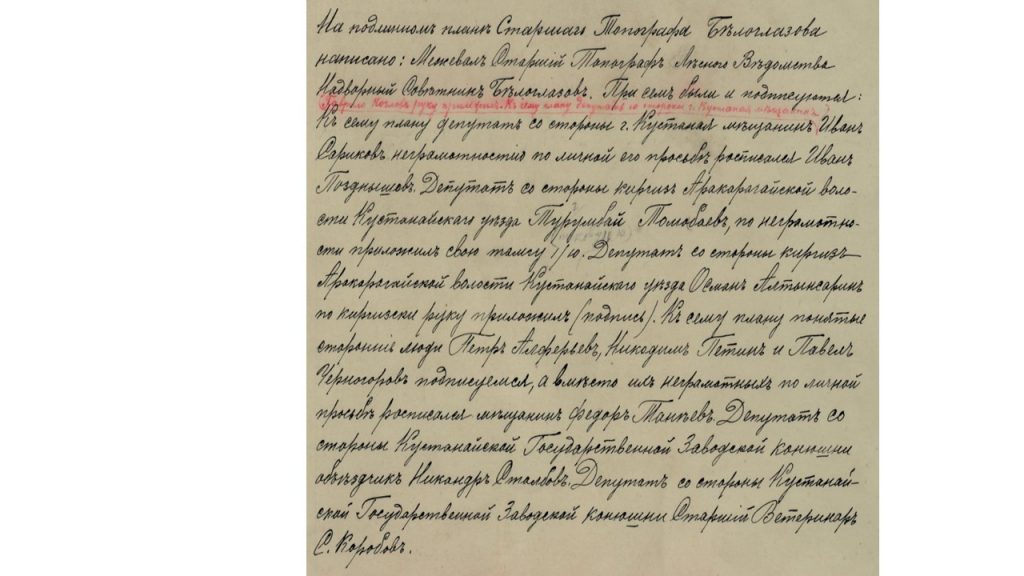 На подлинномъ планѣ Старшаго Топографа Бѣлоглазова
написано: Межевалъ Старшій Топографъ Лѣсного Вѣдомства
Надворный Совѣтникъ Бѣлоглазовъ. При семъ были и подписуются:
Козловъ руку приложилъ. Къ сему плану депутатъ со стороны г. Кустаная мѣщанинъ
Къ сему плану депутатъ со стороны г. Кустаная мѣщанинъ Иванъ
Сариковъ, неграмотностію по личной его просьбѣ росписался Иванъ
Позднышевъ. Депутатъ со стороны киргизъ Аракарагайской воло-
сти Кустанайскаго уѣзда Турумбай Томобаевъ, по неграмотно-
сти приложилъ свою тамгу. Депутатъ со стороны киргизъ
Аракарагайской волости Кустанайскаго уѣзда Османъ Алтынсаринъ
по киргизски руку приложилъ (подпись). Къ сему плану понятые
сторонніе люди Петръ Алферьевъ, Никодимъ Петинъ и Павелъ
Черногоровъ подписуемся, а вмѣсто ихъ неграмотныхъ по личной
просьбѣ росписался мѣщанинъ Федоръ Танѣевъ. Депутатъ со
стороны Кустанайской Государственной Заводской конюшни
объѣздчикъ Никандръ Столбовъ. Депутатъ со стороны Кустанай-
ской Государственной Заводской конюшни Старшій Ветеринаръ
С. Коробовъ.